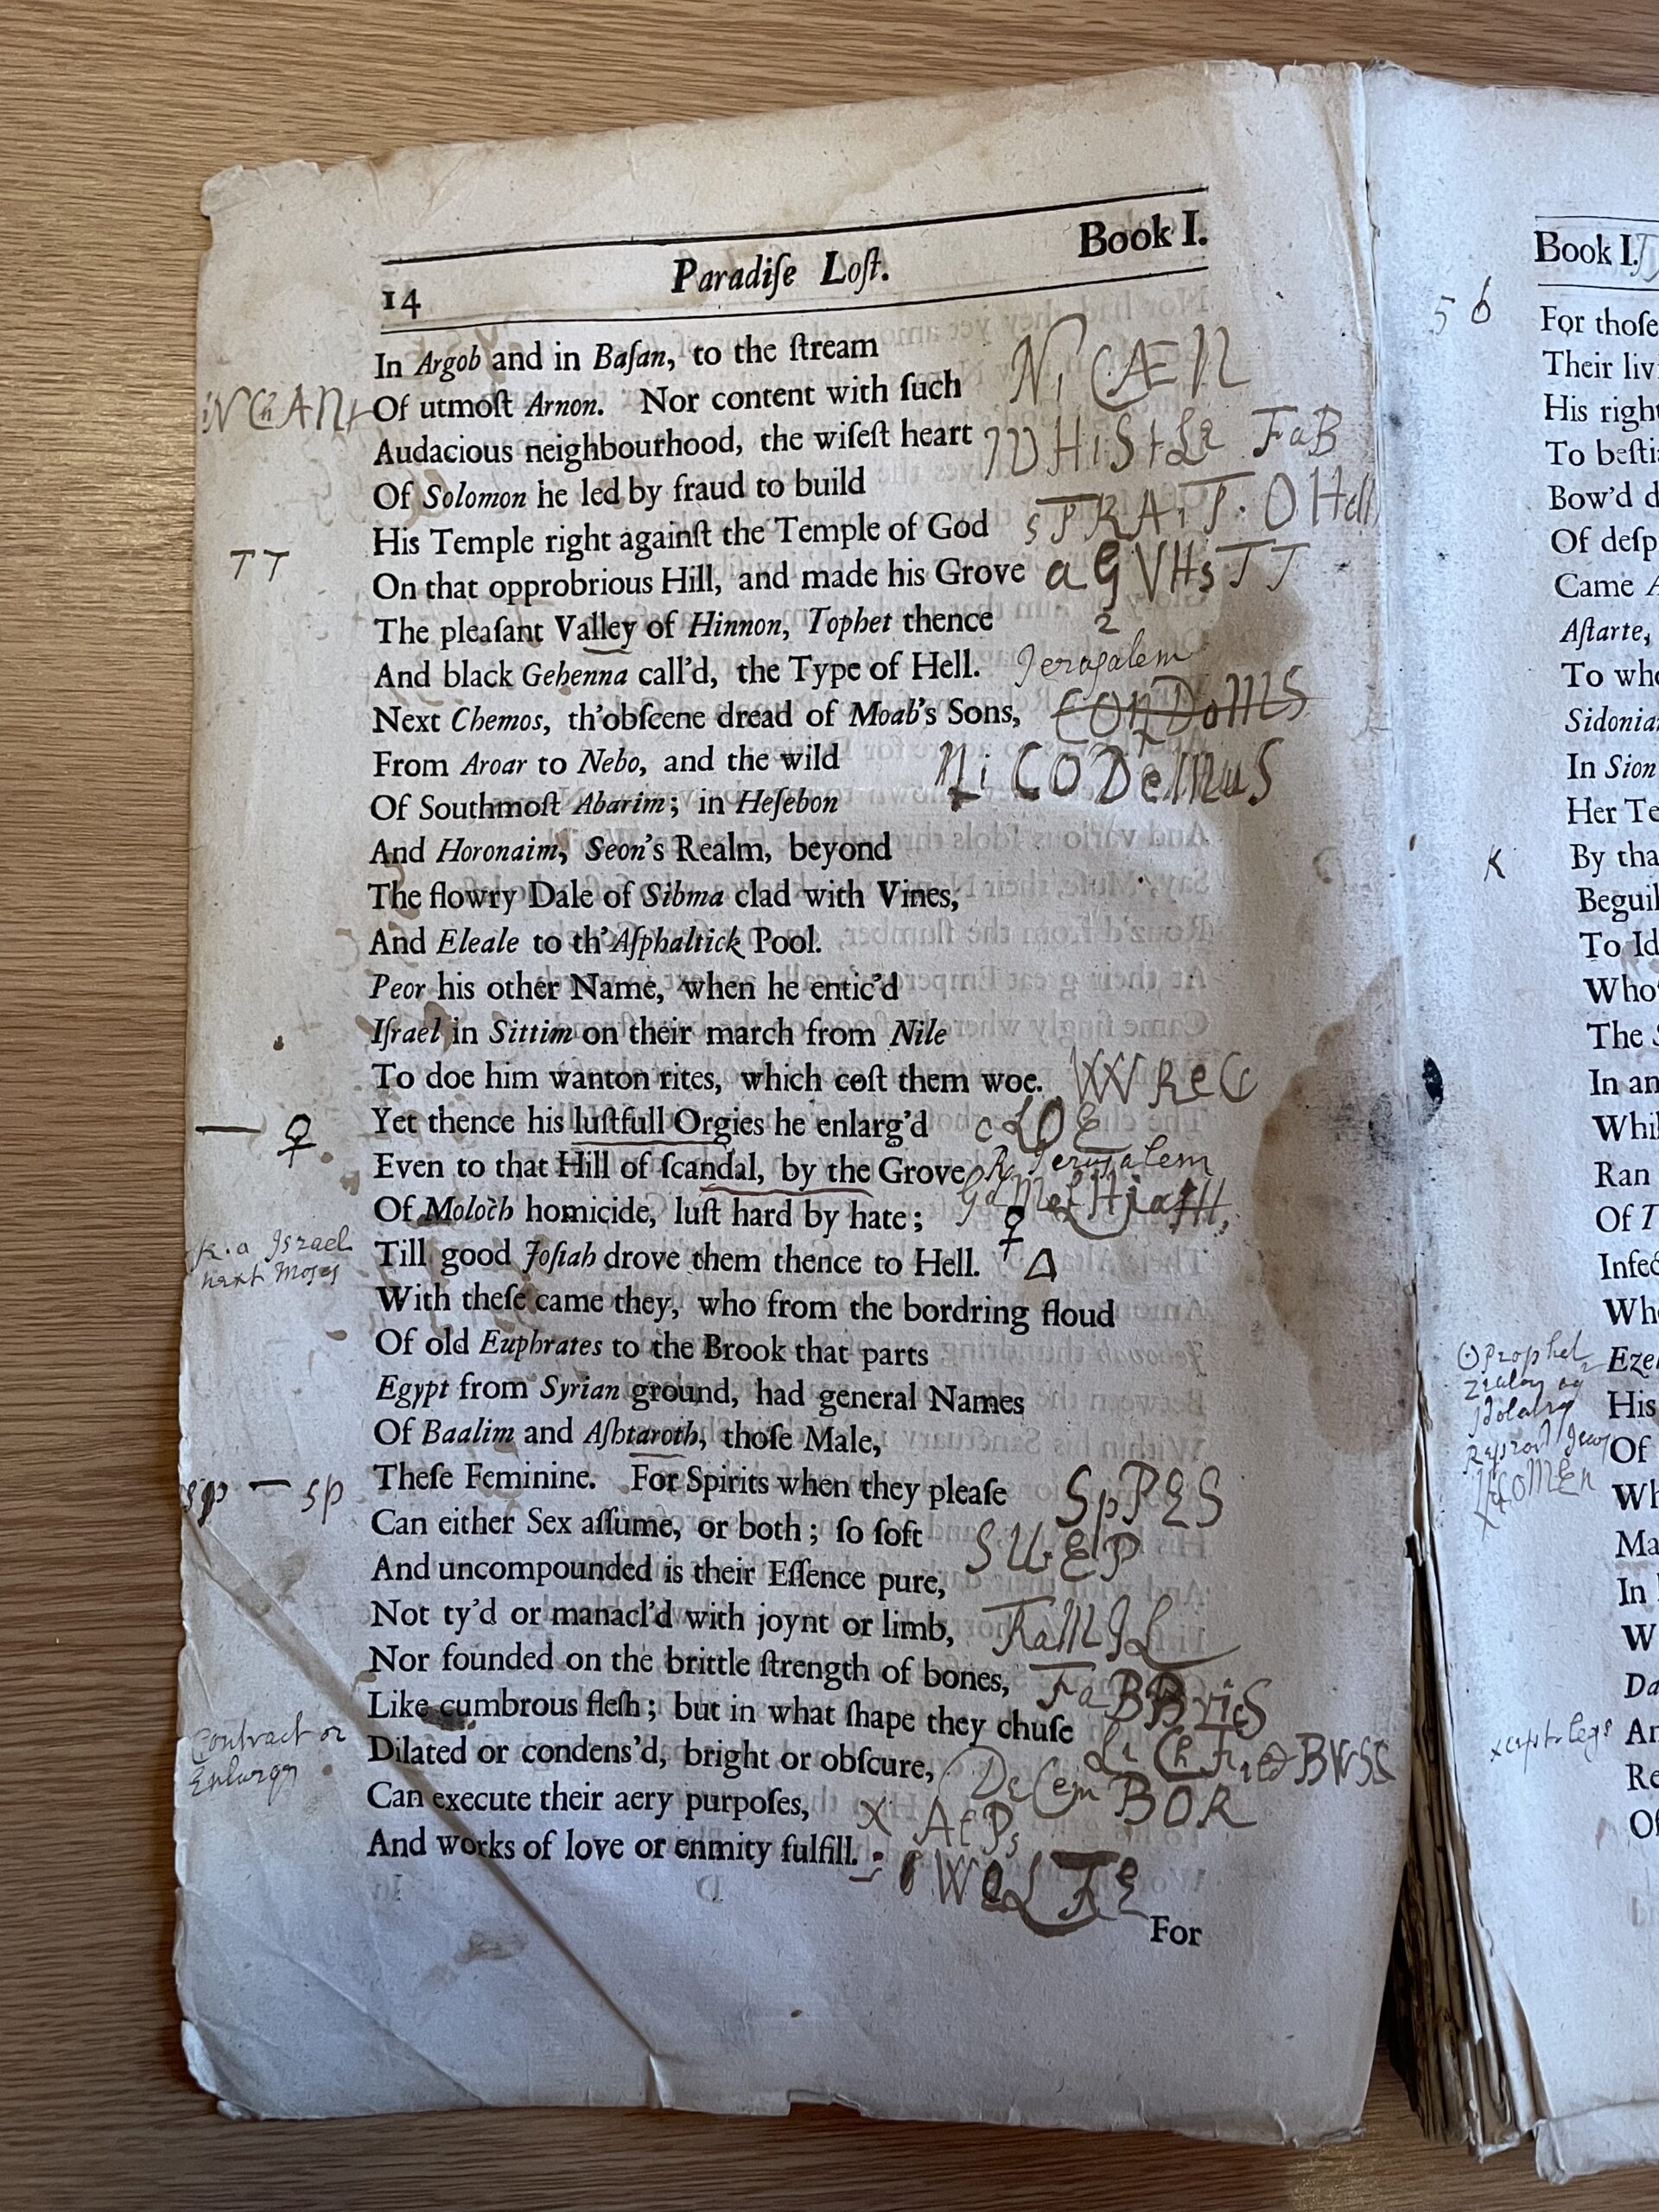 14 Paradiſe Loſt. Book I.
In Argob and in Baſan, to the ſtream
Of utmoſt Arnon. Nor content with ſuch
Audacious neighbourhood, the wiſeſt heart
Of Solomon he led by fraud to build
His Temple right againſt the Temple of God
TT
On that opprobrious Hill, and made his Grove
The pleaſant Valley of Hinnon, Tophet thence
2
And black Gehenna call'd, the Type of Hell. Jerusalem
Next Chemos, th'obſcene dread of Moab's Sons,
From Aroar to Nebo, and the wild NiCODemuS
Of Southmoſt Abarim; in Heſebon
And Horonaim, Seon's Realm, beyond
The flowry Dale of Sibma clad with Vines,
And Eleale to th'Aſphaltick Pool.
Peor his other Name, when he entic'd
Iſrael in Sittim on their march from Nile
To doe him wanton rites, which coſt them woe. WReCc
— ♀ Yet thence his luſtfull Orgies he enlarg'd cLOE
Even to that Hill of ſcandal, by the Grove Jerusalem
Of Moloch homicide, luſt hard by hate; ♀
K. a Israel
next Moses
Till good Joſiah drove them thence to Hell. Δ
With theſe came they, who from the bordring floud
Of old Euphrates to the Brook that parts
Egypt from Syrian ground, had general Names
Of Baalim and Aſhtaroth, thoſe Male,
sp — sp Theſe Feminine. For Spirits when they pleaſe SpPES
Can either Sex aſſume, or both; ſo ſoft
And uncompounded is their Eſſence pure,
Not ty'd or manacl'd with joynt or limb,
Nor founded on the brittle ſtrength of bones,
Like cumbrous fleſh; but in what ſhape they chuſe
Contract or
Enlarge
Dilated or condens'd, bright or obſcure, DeCemBOR
Can execute their aery purpoſes, x
And works of love or enmity fulfill.
For
Book I.
56
For thoſe
Their liv
His right
To beſti
Bow'd d
Of deſp
Came A
Aſtarte,
To who
Sidonia
In Sion
Her Te
K By tha
Beguil
To Id
Who
The S
In an
Whi
Ran
Of T
Infec
Who
Prophet
Eze
His
Of
Wh
Ma
In
W
Da
An
Re
Of